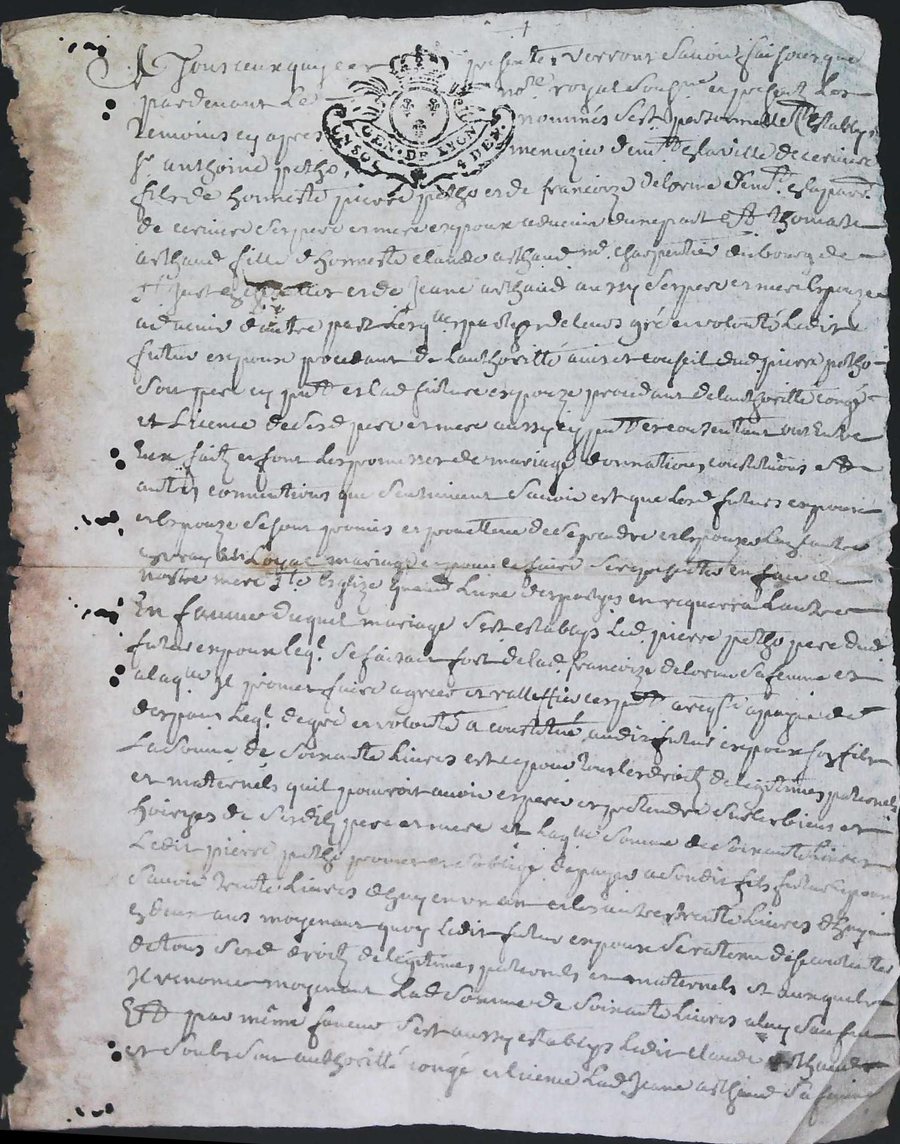 A Tous ceux quy ces presentes verront Savoir faisons que
pardevant le no.re royal Soubsne et present les
temoins cy apres nommés Sest personnellemt estably
GEN. DE LYON
UN SOL 4 DEN.
Sr anthoine petho, menuzier demt de la ville de cerviere
fils de honneste pierre petho et de francoize delorme demt en la parr.
de cerviere Ses pere et mere expoux aduenir dune part Et thomaze
arthaud fille dhonneste claude arthaud md charpentier du bourg de
St Just et de Jeane arthaud aussy Ses pere et mere Espouze
aduenir dautre part Lesq. parties de leurs gré et volonté Ledit
futur expoux procedant de Lauthoritté avis et conseil dud. pierre petho
Son pere cy pnt et lad. future expouze procedant delauthoritté congé
et Licence de Sesd. pere et mere aussy cy pnt et consentant ont Entre
Eux faitz et font Les promesses de mariage donnations constitutions et
autres conventions que Sentuivent Savoir est que Lesd. futurs expoux
et Espouze Se sont promis et promettent de Se prendre et Espouser Lun Lautre
en vray et Loyal mariage et pour ce faire Se representer En face de
nostre mere Ste Esglize quand Lune des parties en requerra Lautre
En faveur duquel mariage Sest estably Led. pierre petho pere dud.
futur expoux leql. Se faisant fort de lad. francoize delorme Sa femme et
alaqlle Il promet faire agreer et rattiffier ces pntes
leql. de gré et volonté a constitué audit futur expoux Son fils
La Somme de Soixante Livres et ce pour tous Les droitz de legitimes paternels
et maternels quil pouroit avoir esperer et pretendre Sur les biens et
hoiryes de Sesdits pere et mere Et Laqlle Somme de Soixante Livres
Ledit pierre petho promet et Soblige de payer a Sondit fils futur Expoux
Savoir trente Livres dhuy en un an et les autres trente Livres dhuy
en deux ans moyenant quoy Ledit futur expoux Se
de tous Sesd. droitz de legitimes paternels et maternels et auxquels
Il renonce moyenant Lad. Somme de Soixante Livres
Et par même faveur Sest aussy estably Ledit claude arthaud
et Soubs Son authoritté congé et licence Lad. Jeane arthaud Sa femme